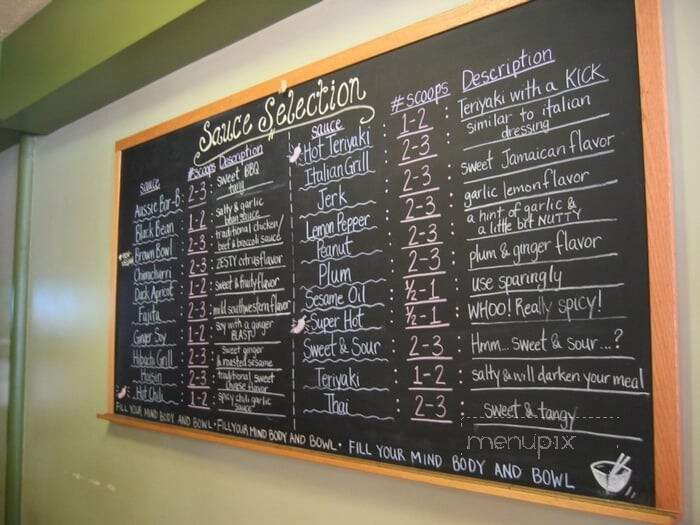 Sauce Selection
sauce #scoops Description
Aussie Bar-B: 2-3: sweet BBQ
tang
Black Bean : 1-2 : salty & garlic
bean sauce
Brown Bowl : 2-3 : traditional chicken/
beef & broccoli sauce
Chimichurri : 2-3 : ZESTY citrus flavor
Duck Apricot : 1-2 : sweet & fruity flavor
Fajita : 2-3 : mild southwestern flavor
Ginger Soy : 1-2 : Soy with a ginger
BLAST!
Hibachi Grill : 2-3 : Sweet ginger
& roasted sesame
Hoisin : 2-3 : traditional sweet
chinese flavor
Hot Chili : 1-2 : spicy chili garlic
sauce
sauce # scoops Description
Hot Teriyaki : 1-2 : Teriyaki with a KICK
Italian Grill : 2-3 : similar to italian
dressing
Jerk : 2-3 : sweet Jamaican flavor
Lemon Pepper : 2-3 : garlic lemon flavor
Peanut : 2-3 : a hint of garlic &
a little bit NUTTY
Plum : 2-3 : plum & ginger flavor
Sesame Oil : ½-1 : use sparingly
Super Hot : ½-1 : WHOO! Really spicy!
Sweet & Sour : 2-3 : Hmm... sweet & sour...?
Teriyaki : 1-2 : salty & will darken your meal
Thai : 2-3 : sweet & tangy
FILL YOUR MIND BODY AND BOWL • FILL YOUR MIND BODY AND BOWL • FILL YOUR MIND BODY AND BOWL
menupix